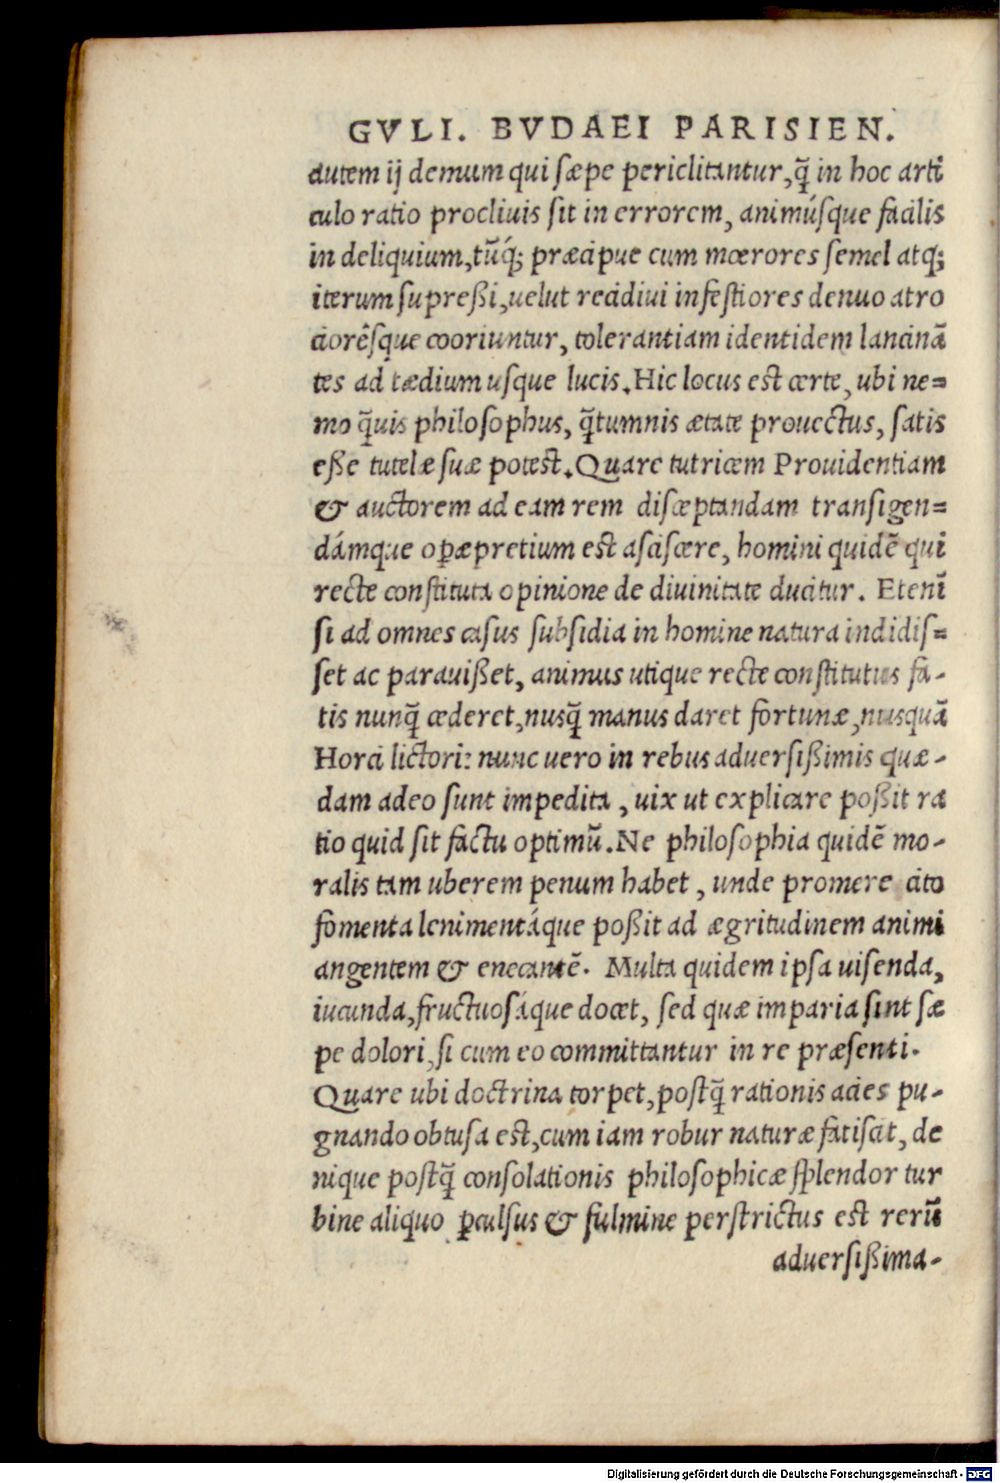 GVLI. BVDAEI PARISIEN.
autem ij demum qui sæpe periclitantur, q̃ in hoc arti
culo ratio procliuis sit in errorem, animúsque facilis
in deliquium, tũq́; præcipue cum mœrores semel atq;
iterum supreßi, uelut recidiui infestiores denuo atro
ciorêsque cooriuntur, tolerantiam identidem lancinã
tes ad tædium usque lucis. Hic locus est certe, ubi ne=
mo q̃uis philosophus, q̃tumnis ætate prouectus, satis
eße tutelæ suæ potest. Quare tutricem Prouidentiam
& auctorem ad eam rem disceptandam transigen=
dámque oꝑæpretium est asciscere, homini quidẽ qui
recte constituta opinione de diuinitate ducitur. Etenĩ
si ad omnes casus subsidia in homine natura indidis=
set ac parauißet, animus utique recte constitutus fa-
tis nunq̃ cederet, nusq̃ manus daret fortunæ, nusquã
Horci lictori: nunc uero in rebus aduersißimis quæ-
dam adeo sunt impedita, uix ut explicare poßit ra
tio quid sit factu optimũ. Ne philosophia quidẽ mo-
ralis tam uberem penum habet, unde promere cito
fomenta lenimentáque poßit ad ægritudinem animi
angentem & enecantẽ. Multa quidem ipsa uisenda,
iucunda, fructuosáque docet, sed quæ imparia sint sæ
pe dolori, si cum eo committantur in re præsenti.
Quare ubi doctrina torpet, postq̃ rationis acies pu-
gnando obtusa est, cum iam robur naturæ fatiscit, de
nique postq̃ consolationis philosophicæ splendor tur
bine aliquo ꝑculsus & fulmine perstrictus est rerũ
aduersißima-
Digitalisierung gefördert durch die Deutsche Forschungsgemeinschaft - DFG